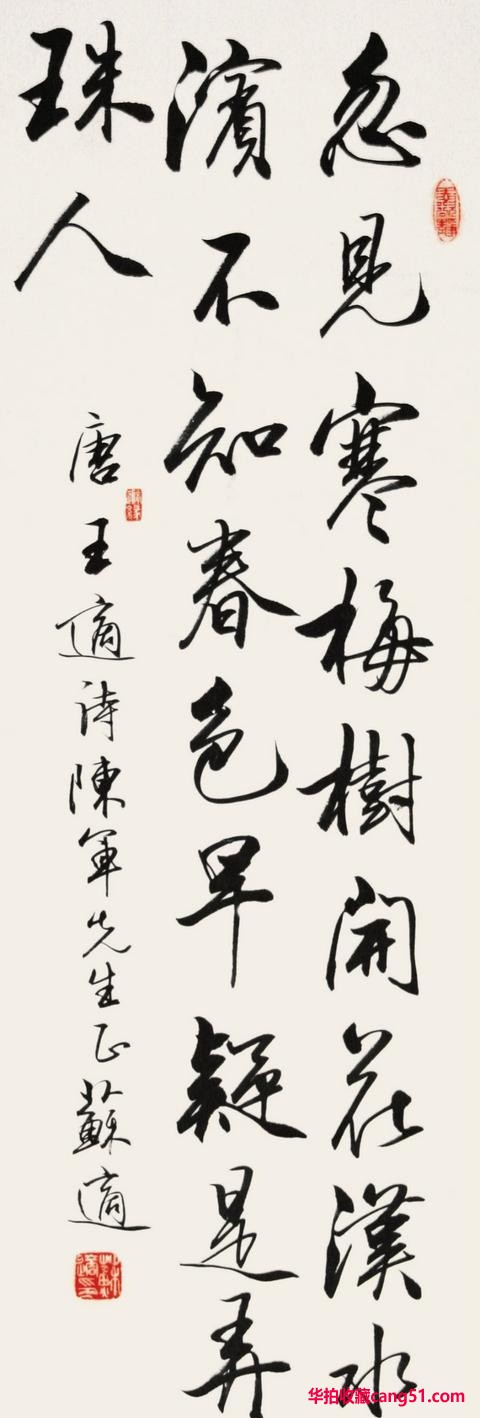 忽見寒梅樹開花漢水
濱不知春色早疑是弄
珠人
唐王適詩陳軍先生正蘇適
华拍收藏cang51.com